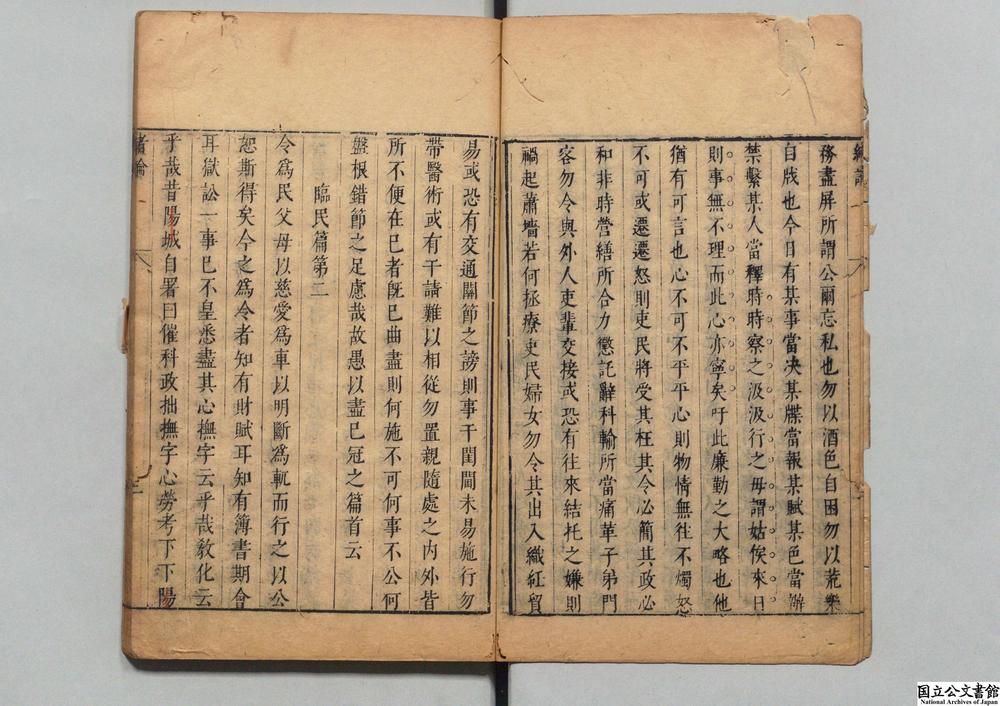 務盡屏所謂公爾忘私也勿以酒色自困勿以荒樂
自戕也今日有某事當决某牒當報某賦某色當辦
禁繫某人當釋時時察之汲汲行之毋謂姑俟來日
則事無不理而此心亦寧矣吁此廉勤之大略也他
猶有可言也心不可不平平心則物情無徃不燭怒
不可或遷遷怒則吏民將受其枉其令必簡其政必
和非時營繕所合力懲託辭科輸所當痛革子弟門
容勿令與外人吏輩交接或恐有往來結托之嫌則
禍起蕭墻若何拯療吏民婦女勿令其出入織紅貿
易或恐有交通關節之謗則事干閨閫未易施行勿
帶醫術或有干請難以相從勿置親隨處之内外皆
所不便在已者既已曲盡則何施不可何事不公何
盤根錯節之足慮哉故愚以盡已冠之篇首云
臨民篇第二
令爲民父母以慈愛爲車以明斷爲軏而行之以公
恕斯得矣今之爲令者知有財賦耳知有簿書期會
耳獄訟一事已不皇悉盡其心撫字云乎哉敎化云
乎哉昔陽城自署曰催科政拙撫字心勞考下下陽
緒論
国立公文書館
National Archives of Japan